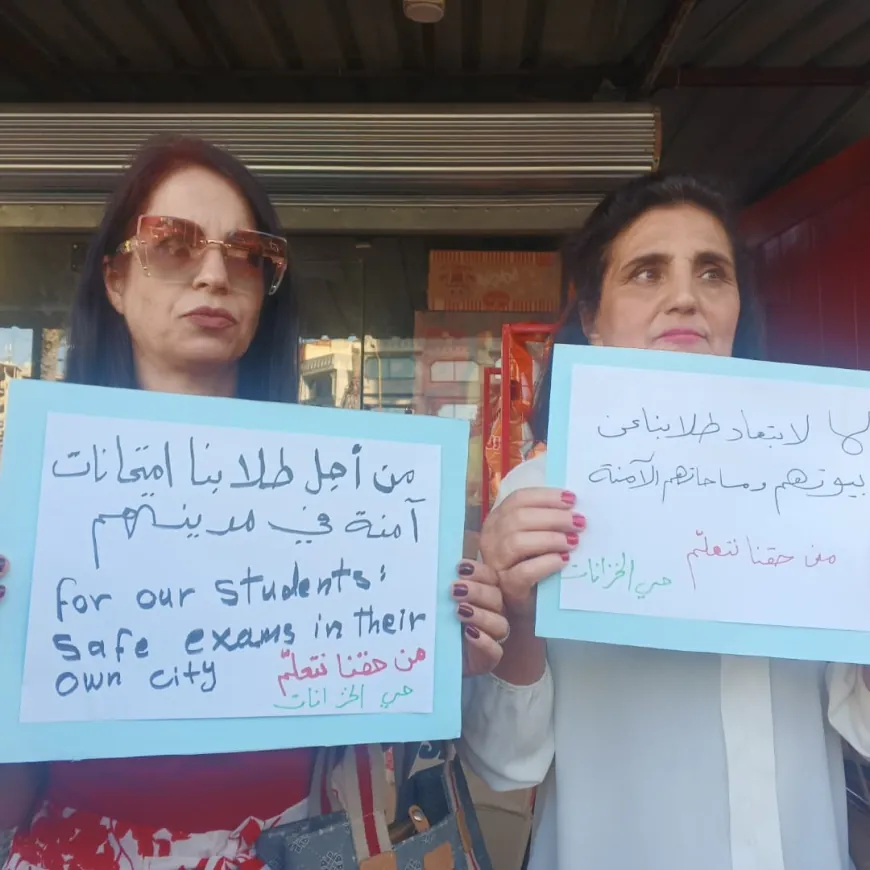 من أجل طلابنا امتحانات
آمنة في مدينتهم
for our students:
safe exams in their
own city
من حقنا نتعلّم
حي الخزانات
لا لابتعاد طلابنا عن
بيوتهم ومساحاتهم الآمنة
من حقنا نتعلّم
حي الخزانات